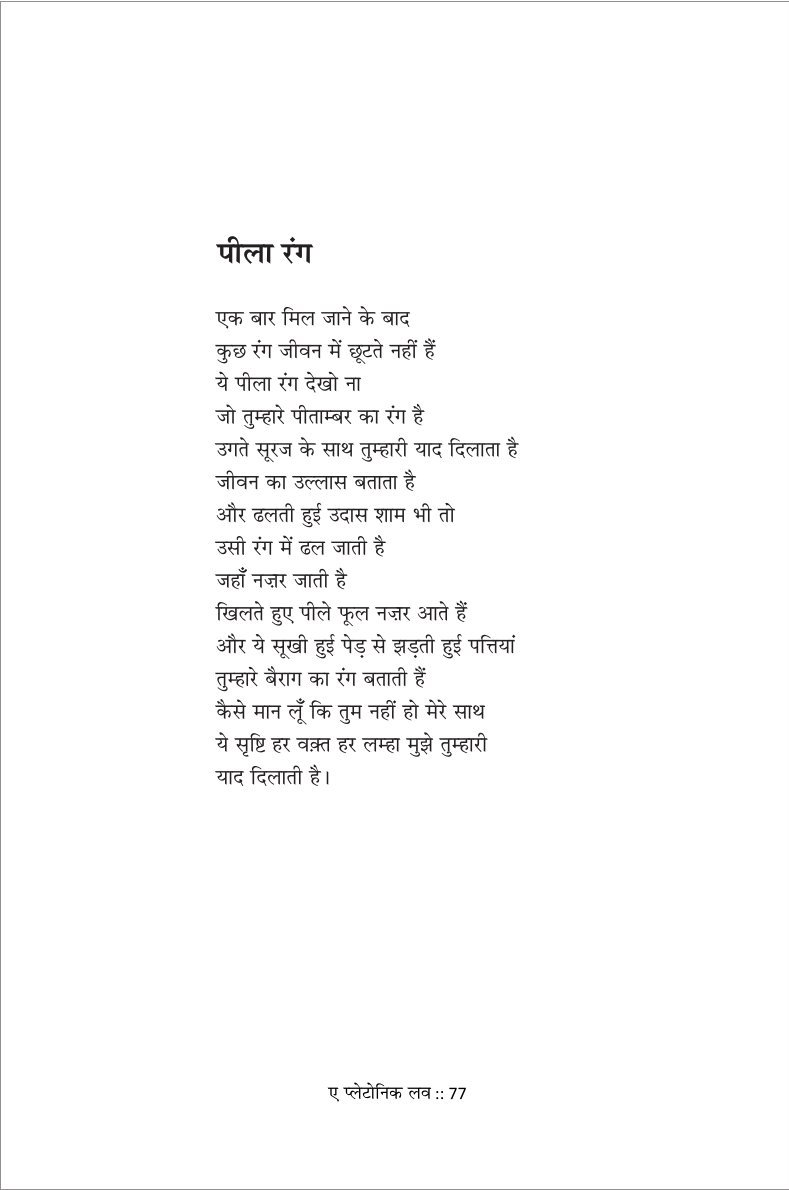 पीला रंग
एक बार मिल जाने के बाद
कुछ रंग जीवन में छूटते नहीं हैं
ये पीला रंग देखो ना
जो तुम्हारे पीताम्बर का रंग है
उगते सूरज के साथ तुम्हारी याद दिलाता है
जीवन का उल्लास बताता है
और ढलती हुई उदास शाम भी तो
उसी रंग में ढल जाती है
जहाँ नज़र जाती है
खिलते हुए पीले फूल नज़र आते हैं
और ये सूखी हुई पेड़ से झड़ती हुई पत्तियां
तुम्हारे बैराग का रंग बताती हैं
कैसे मान लूँ कि तुम नहीं हो मेरे साथ
ये सृष्टि हर वक़्त हर लम्हा मुझे तुम्हारी
याद दिलाती है।
ए प्लेटोनिक लव :: 77